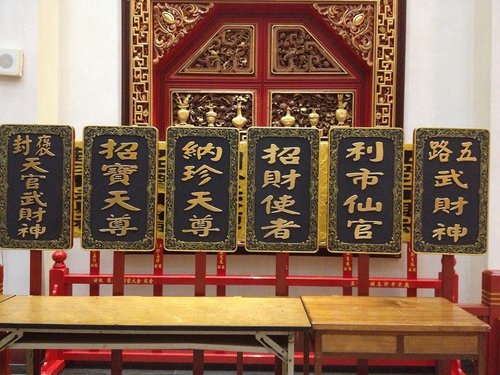 褒封天官武財神
招寶天尊
納珍天尊
招財使者
利市仙官
五路武財神